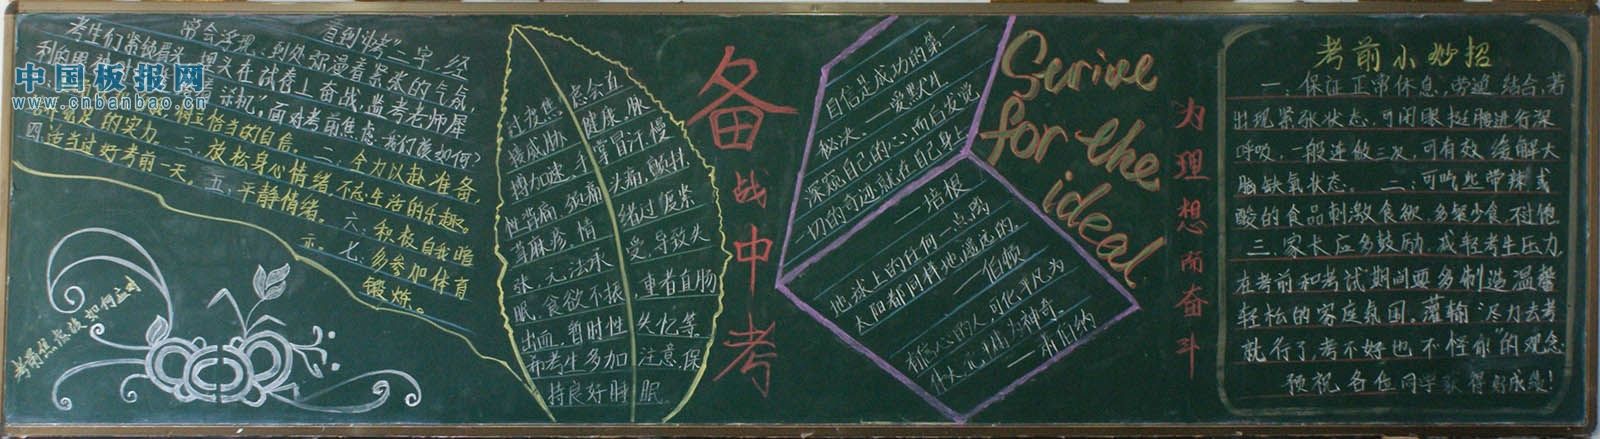 看到"中考"二字,经
常会浮现:到处弥漫着紧张的气氛,
考生们紧锁眉头,埋头在试卷上奋战,监考老师犀
面对考前焦虑,我们该如何?
树立恰当的自信。二、全力以赴准备,
足的实力。三、放松身心情绪,不忘生活的乐趣。
四、适当过好考前一天。五、平静情绪。六、积极自我暗
示。七、多参加体育
锻炼。
中国板报网
www.cnbanbao.cn
考前焦虑该如何应对
过度焦虑会直
接威胁健康,脉
搏加速、手掌冒汗、慢
性背痛、颈痛、头痛、颤抖、
荨麻疹、情绪过度紧
张,无法承受,导致失
眠、食欲不振,重者自肠
出血,暂时性失忆等。
希考生多加注意,保
持良好睡眠。
备战中考
自信是成功的第一
秘决。——爱默生
深窥自己的心,而后发觉
一切的奇迹就在自己身上
——培根
地球上的任何一点离
太阳都同样地遥远的。
——伯顿
有信心的人,可化平凡为
伟大,化神奇。
——肖伯纳
Serive
for the
ideal
为理想而奋斗
考前小妙招
一、保证正常休息,劳逸结合,若
出现紧张状态,可闭眼挺腰进行深
呼吸,一般连做三次,可有效缓解大
脑缺氧状态。二、可吃些带辣或
酸的食品刺激食欲,多餐少食,不过饱。
三、家长应多鼓励,减轻考生压力,
在考前和考试期间要多制造温馨
轻松的家庭氛围。灌输"尽力去考
就行了,考不好也不怪你"的观念
预祝各位同学获得好成绩!